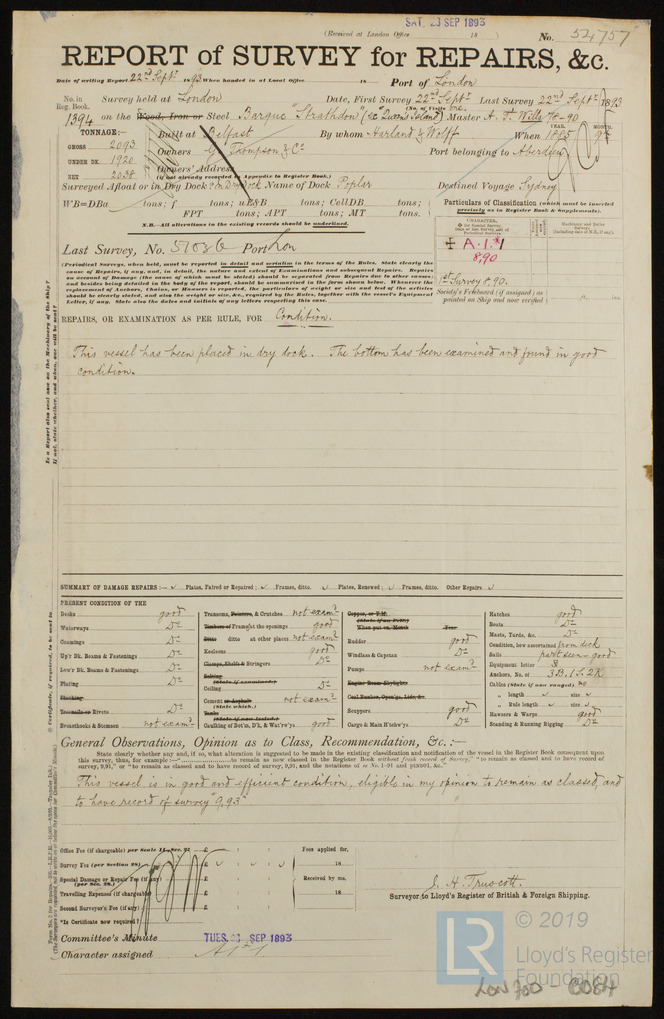 SAT. 23 SEP 1893
(Received at London Office 18 ) No. 54757
REPORT of SURVEY for REPAIRS, &c.
Date of writing Report 22nd Septr 1893 When handed in at Local Office 18 Port of London
No. in Reg. Book. Survey held at London Date, First Survey 22nd Septr Last Survey 22nd Septr 1893
(No. of Visits one.)
1394 on the Wood, Iron or Steel Barque "Strathdon" (ex "Queens Island") Master A. F. Wills 78-90
TONNAGE:— Built at Belfast By whom Harland & Wolff When 1885 YEAR. MONTH.
GROSS 2093 Owners G Thompson & Co Port belonging to Aberdeen
UNDER DK. 1920 Owners' Address
NET 2038 (if not already recorded in Appendix to Register Book.)
Surveyed Afloat or in Dry Dock in Dry Dock Name of Dock Poplar Destined Voyage Sydney
WB=DBa tons; f tons; uE&B tons; CellDB tons;
FPT tons; APT tons; MT tons.
N.B.—All alterations in the existing records should be underlined.
Particulars of Classification (which must be inserted
precisely as in Register Book & Supplements).
CHARACTER.
✠ A.1.*1
8,90
1st Survey 8.90.
Society's Freeboard (if assigned) as
printed on Ship and now verified
Last Survey, No. 51036 Port Lon
(Periodical Surveys, when held, must be reported in detail and seriatim in the terms of the Rules. State clearly the
cause of Repairs, if any, and, in detail, the nature and extent of Examinations and subsequent Repairs. Repairs
on account of Damage (the cause of which must be stated) should be separated from Repairs due to other causes;
and besides being detailed in the body of the report, should be summarised in the form shown below. Whenever the
replacement of Anchors, Chains, or Hawsers is reported, the particulars of weight or size and test of the articles
should be clearly stated, and also the weight or size, &c., required by the Rules, together with the vessel's Equipment
Letter, if any. State also the dates and initials of any letters respecting this case.
REPAIRS, OR EXAMINATION AS PER RULE, FOR Condition.
This vessel has been placed in dry dock. The bottom has been examined and found in good
condition.
Is a Report also sent now on the Machinery of the Ship?
If not, state whether, and when, one will be sent?
SUMMARY OF DAMAGE REPAIRS:— Plates, Faired or Repaired; Frames, ditto. Plates, Renewed; Frames, ditto. Other Repairs
PRESENT CONDITION OF THE
Decks good
Waterways Do
Coamings Do
Up'r Dk. Beams & Fastenings Do
Low'r Dk. Beams & Fastenings Do
Plating Do
Caulking
Treenails or Rivets Do
Breasthooks & Stemson not examd
Transoms, Pointers, & Crutches not examd
Timbers or Frames at the openings good
Ditto ditto at other places not examd
Keelsons good
Clamps, Shelfs & Stringers Do
Ceiling Do
Cement or Asphalt not examd
(State which.)
Caulking of Bot'm, D'k, & Wat'rw'ys good
Copper, or Y.M.
When put on, Month Year
Rudder good
Windlass & Capstan Do
Pumps not examd
Engine Room Skylights
Coal Bunker, Open'gs, Lids, &c.
Scuppers good
Cargo & Main H'tchw'ys Do
Hatches good
Boats Do
Masts, Yards, &c. Do
Condition, how ascertained from deck
Sails part seen good
Equipment letter
Anchors, No. of 3B,1S,2K
Cables (State if now ranged) no
" length size
" Rule length size
Hawsers & Warps good
Standing & Running Rigging Do
General Observations, Opinion as to Class, Recommendation, &c.:—
State clearly whether any, and if so, what alteration is suggested to be made in the existing classification and notification of the vessel in the Register Book consequent upon
This vessel is in good and efficient condition, eligible in my opinion to remain as classed, and
to have record of survey "9,93"
Office Fee (if chargeable) per Scale £
Survey Fee (per Section 28) £
Special Damage or Repair Fee (if any) £
(per Sec. 28.)
Travelling Expenses (if chargeable) £
Second Surveyor's Fee (if any) £
*Is Certificate now required?
Fees applied for,
18
Received by me,
18
J. H. Truscott.
Surveyor to Lloyd's Register of British & Foreign Shipping.
Committee's Minute TUES. 26 SEP 1893
Character assigned
LR © 2019
Lloyd's Register
Foundation
LON 700 - 0084